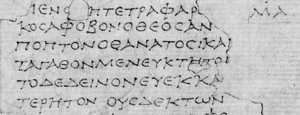 ΜΕΝΣ ΗΤΕΤΡΑΦΑΡ ΜΑ
ΚΟΣΑΦΟΒΟΝΟΘΕΟΣΑΝ
ΠΟΠΤΟΝΟΘΑΝΑΤΟΣΚΑΙ
ΤΑΓΑΘΟΝΜΕΝΕΥΚΤΗΤΟ
ΤΟΔΕΔΕΙΝΟΝΕΥΕΚΚΑ
ΤΕΡΗΤΟΝ ΟΥΣΔΕΚΤΩΝ